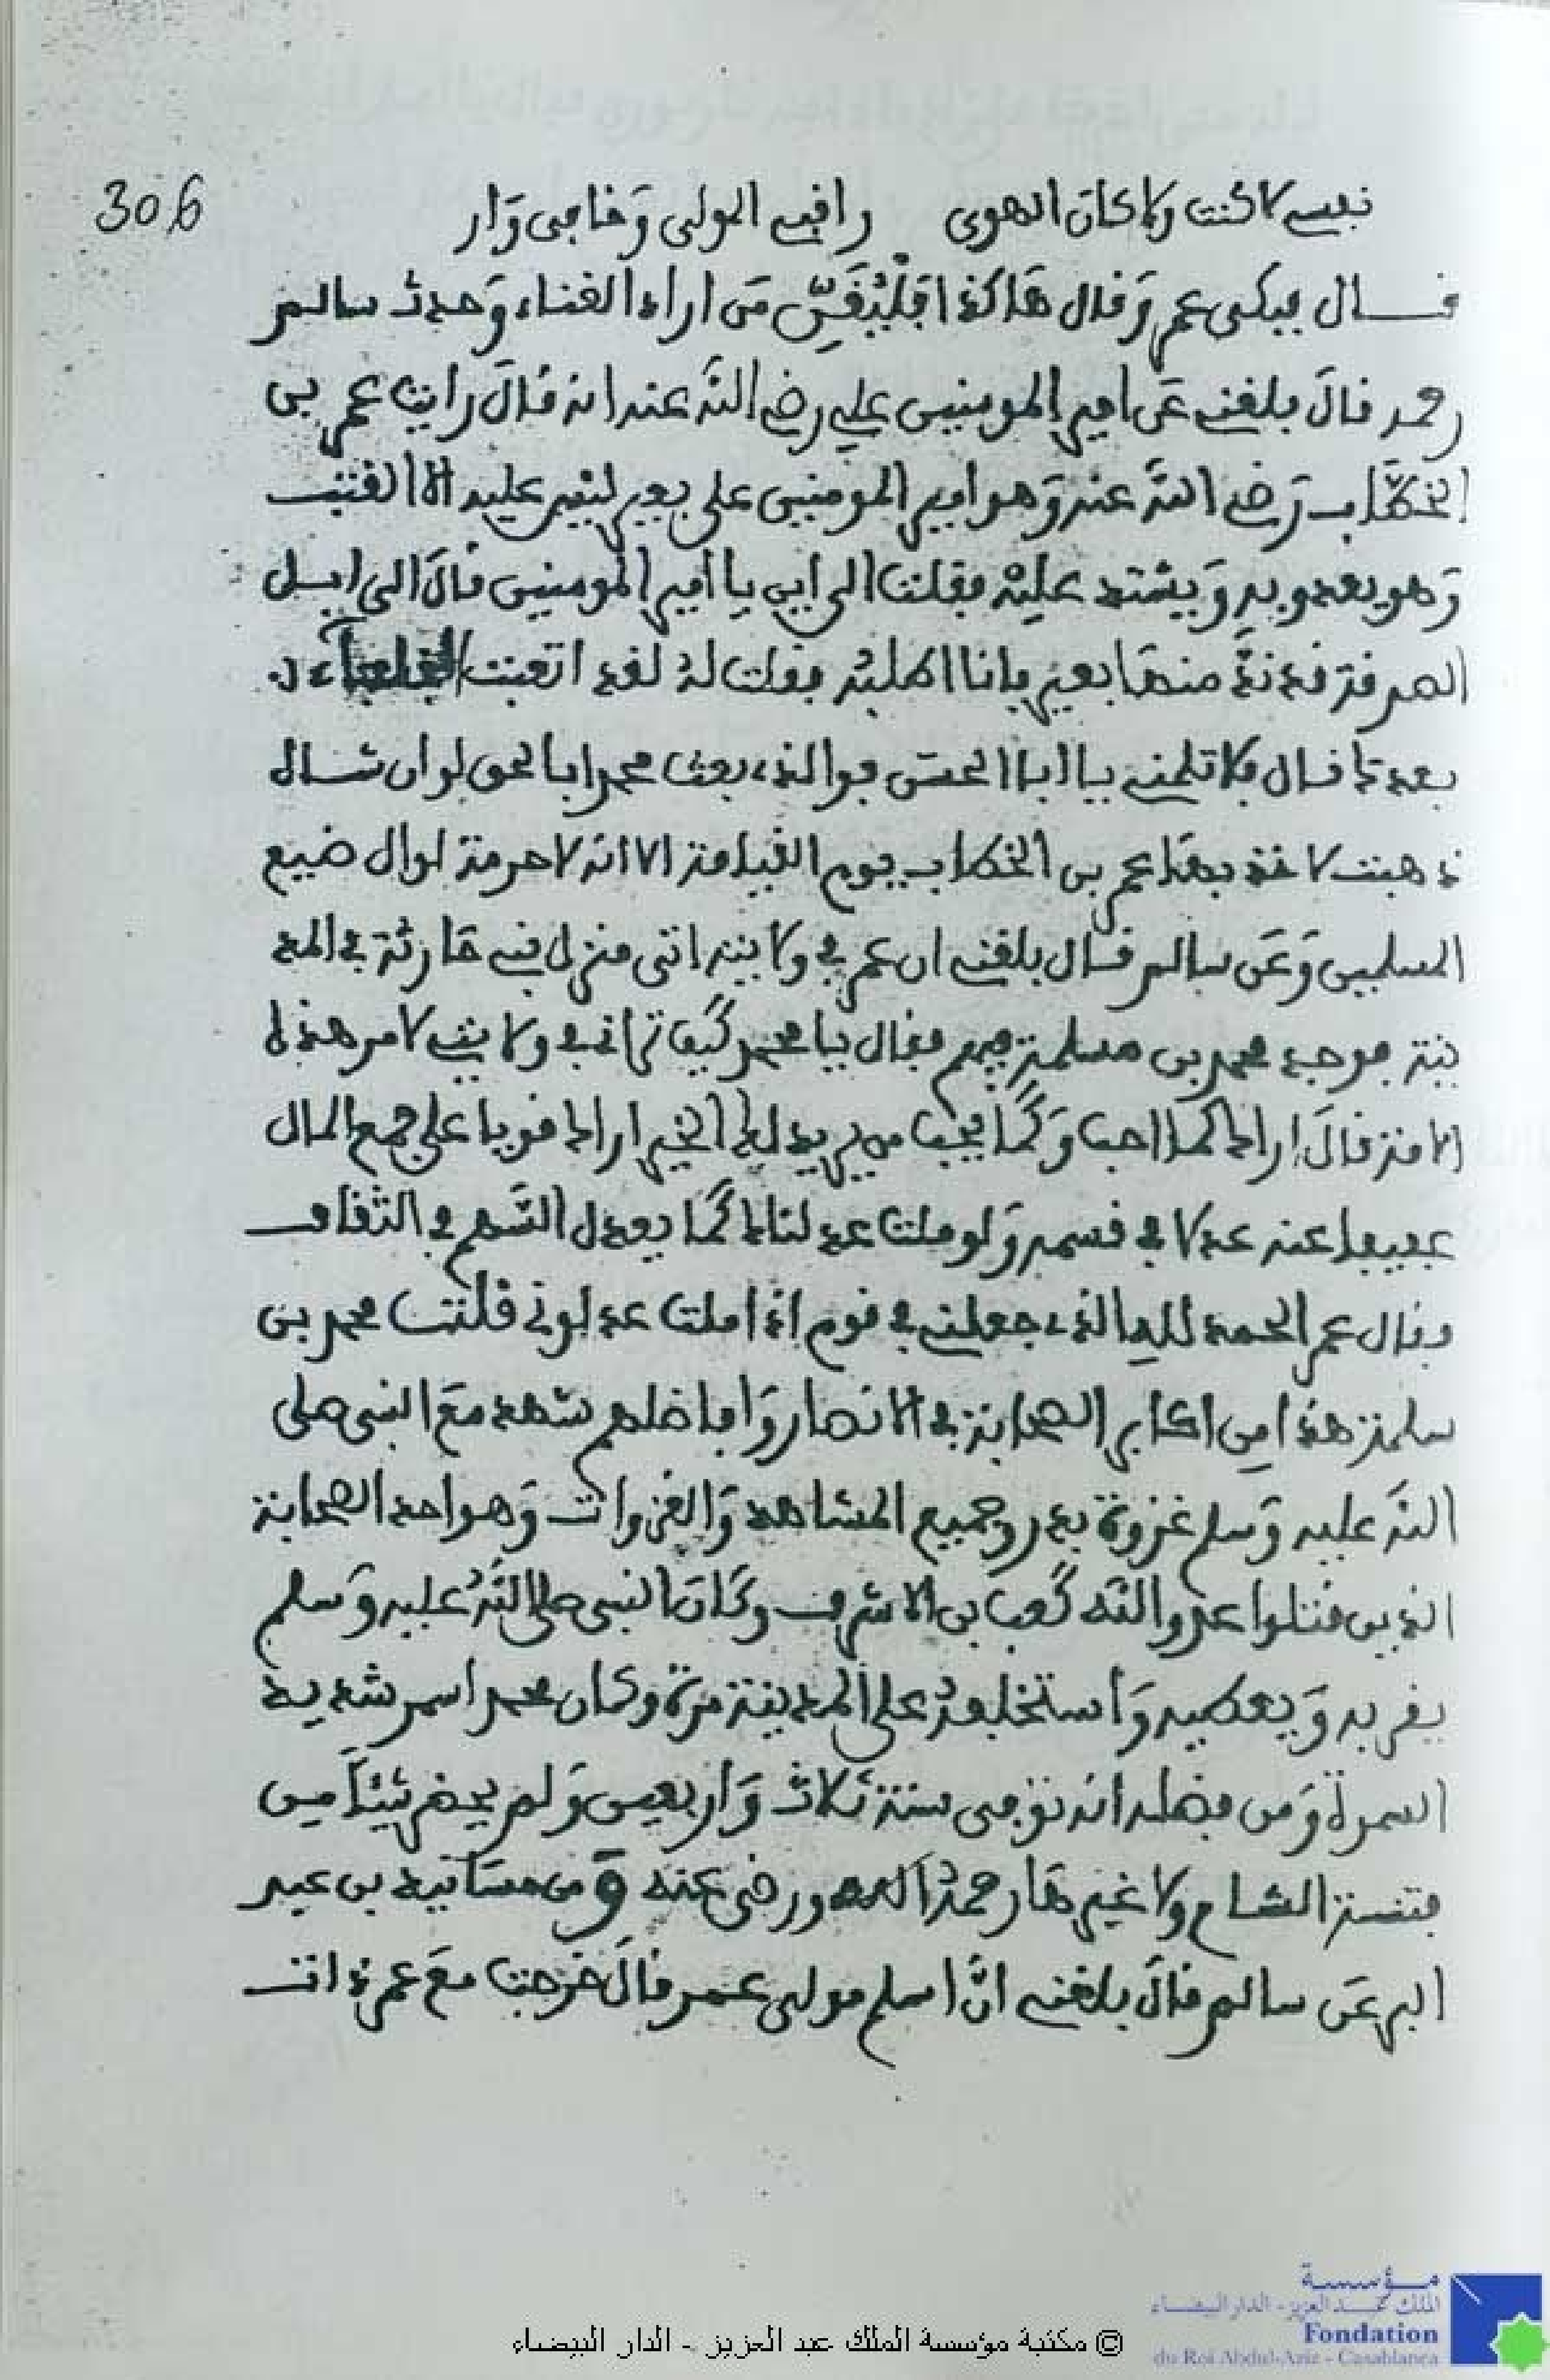 306
نفسي لا كنت ولا كان الهوى راقبي المولى وخافي وار
قال فبكى عمر وقال هاكذا فليغن من اراد الغناء وحدث سالم
رحمه قال بلغني عن امير المومنين علي رضي الله عنه انه قال رايت عمر بن
الخطاب رضي الله عنه وهو امير المومنين على بعير ليس عليه الا القتب
وهو يعدو به ويشتد عليه فقلت الى اين يا امير المومنين قال الى ابل
الصدقة قد ند منها بعير فانا اطلبه فقلت له لقد اتعبت الخلفاء
بعدك قال فلا تلمني يا ابا الحسن فوالذي بعث محمدا بالحق لو ان شاة
ذهبت لاخذ بها عمر بن الخطاب يوم القيامة الا انه لا حرمة لوال ضيع
المسلمين وعن سالم قال بلغني ان عمر في ولايته اتى منزل بني حارثة في المد
ينة فوجد محمد بن مسلمة فيهم فقال يا محمد كيف تراني في ولايتي لامر هذه ا
الامة قال اراك كما احب وكما يحب من يريد لك الخير اراك قويا على جمع المال
عفيفا عنه عدلا في قسمه ولو ملت عدلناك كما يعدل السهم في الثقاف
وقال عمر الحمد لله الذي جعلني في قوم اذا ملت عدلوني قلت محمد بن
سلمة هذا من اكابر الصحابة في الانصار وافاضلهم شهد مع النبي صلى
الله عليه وسلم غزوة بدر وجميع المشاهد والغزوات وهو احد الصحابة
الذين قتلوا عدو الله كعب بن الاشرف وكان النبي صلى الله عليه وسلم
يقربه ويعطيه واستخلفه على المدينة مرة وكان محمد اسمر شديد
السمرة ومن فضله انه توفى سنة ثلاث واربعين ولم يحضر شيئا من
فتنة الشام ولا غيرها رحمه الله ورضى عنه ومن مسانيد بن عبد
البر عن سالم قال بلغني ان اسلم مولى عمر قال خرجت مع عمر ذات
© مكتبة مؤسسة الملك عبد العزيز - الدار البيضاء
مؤسسة
الملك عبد العزيز - الدار البيضاء
Fondation
du Roi Abdul-Aziz - Casablanca